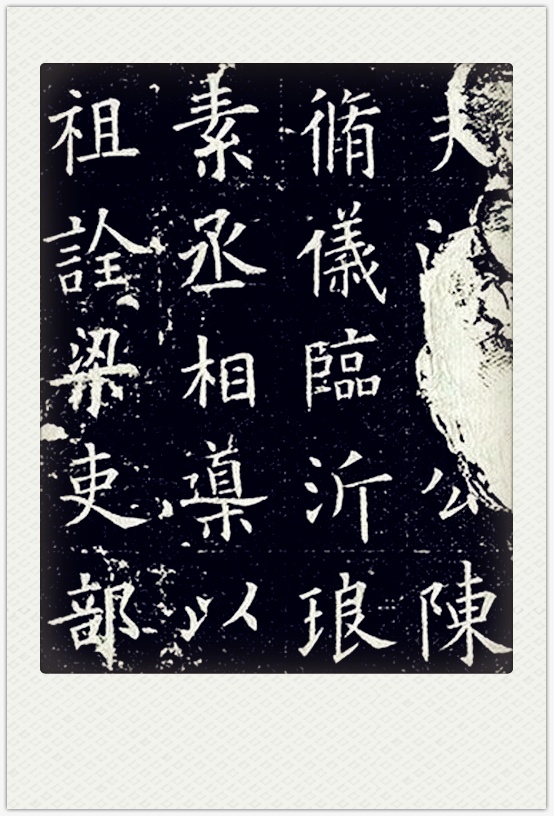 公陳
脩儀臨沂琅
素丞相導以
祖詮梁吏部